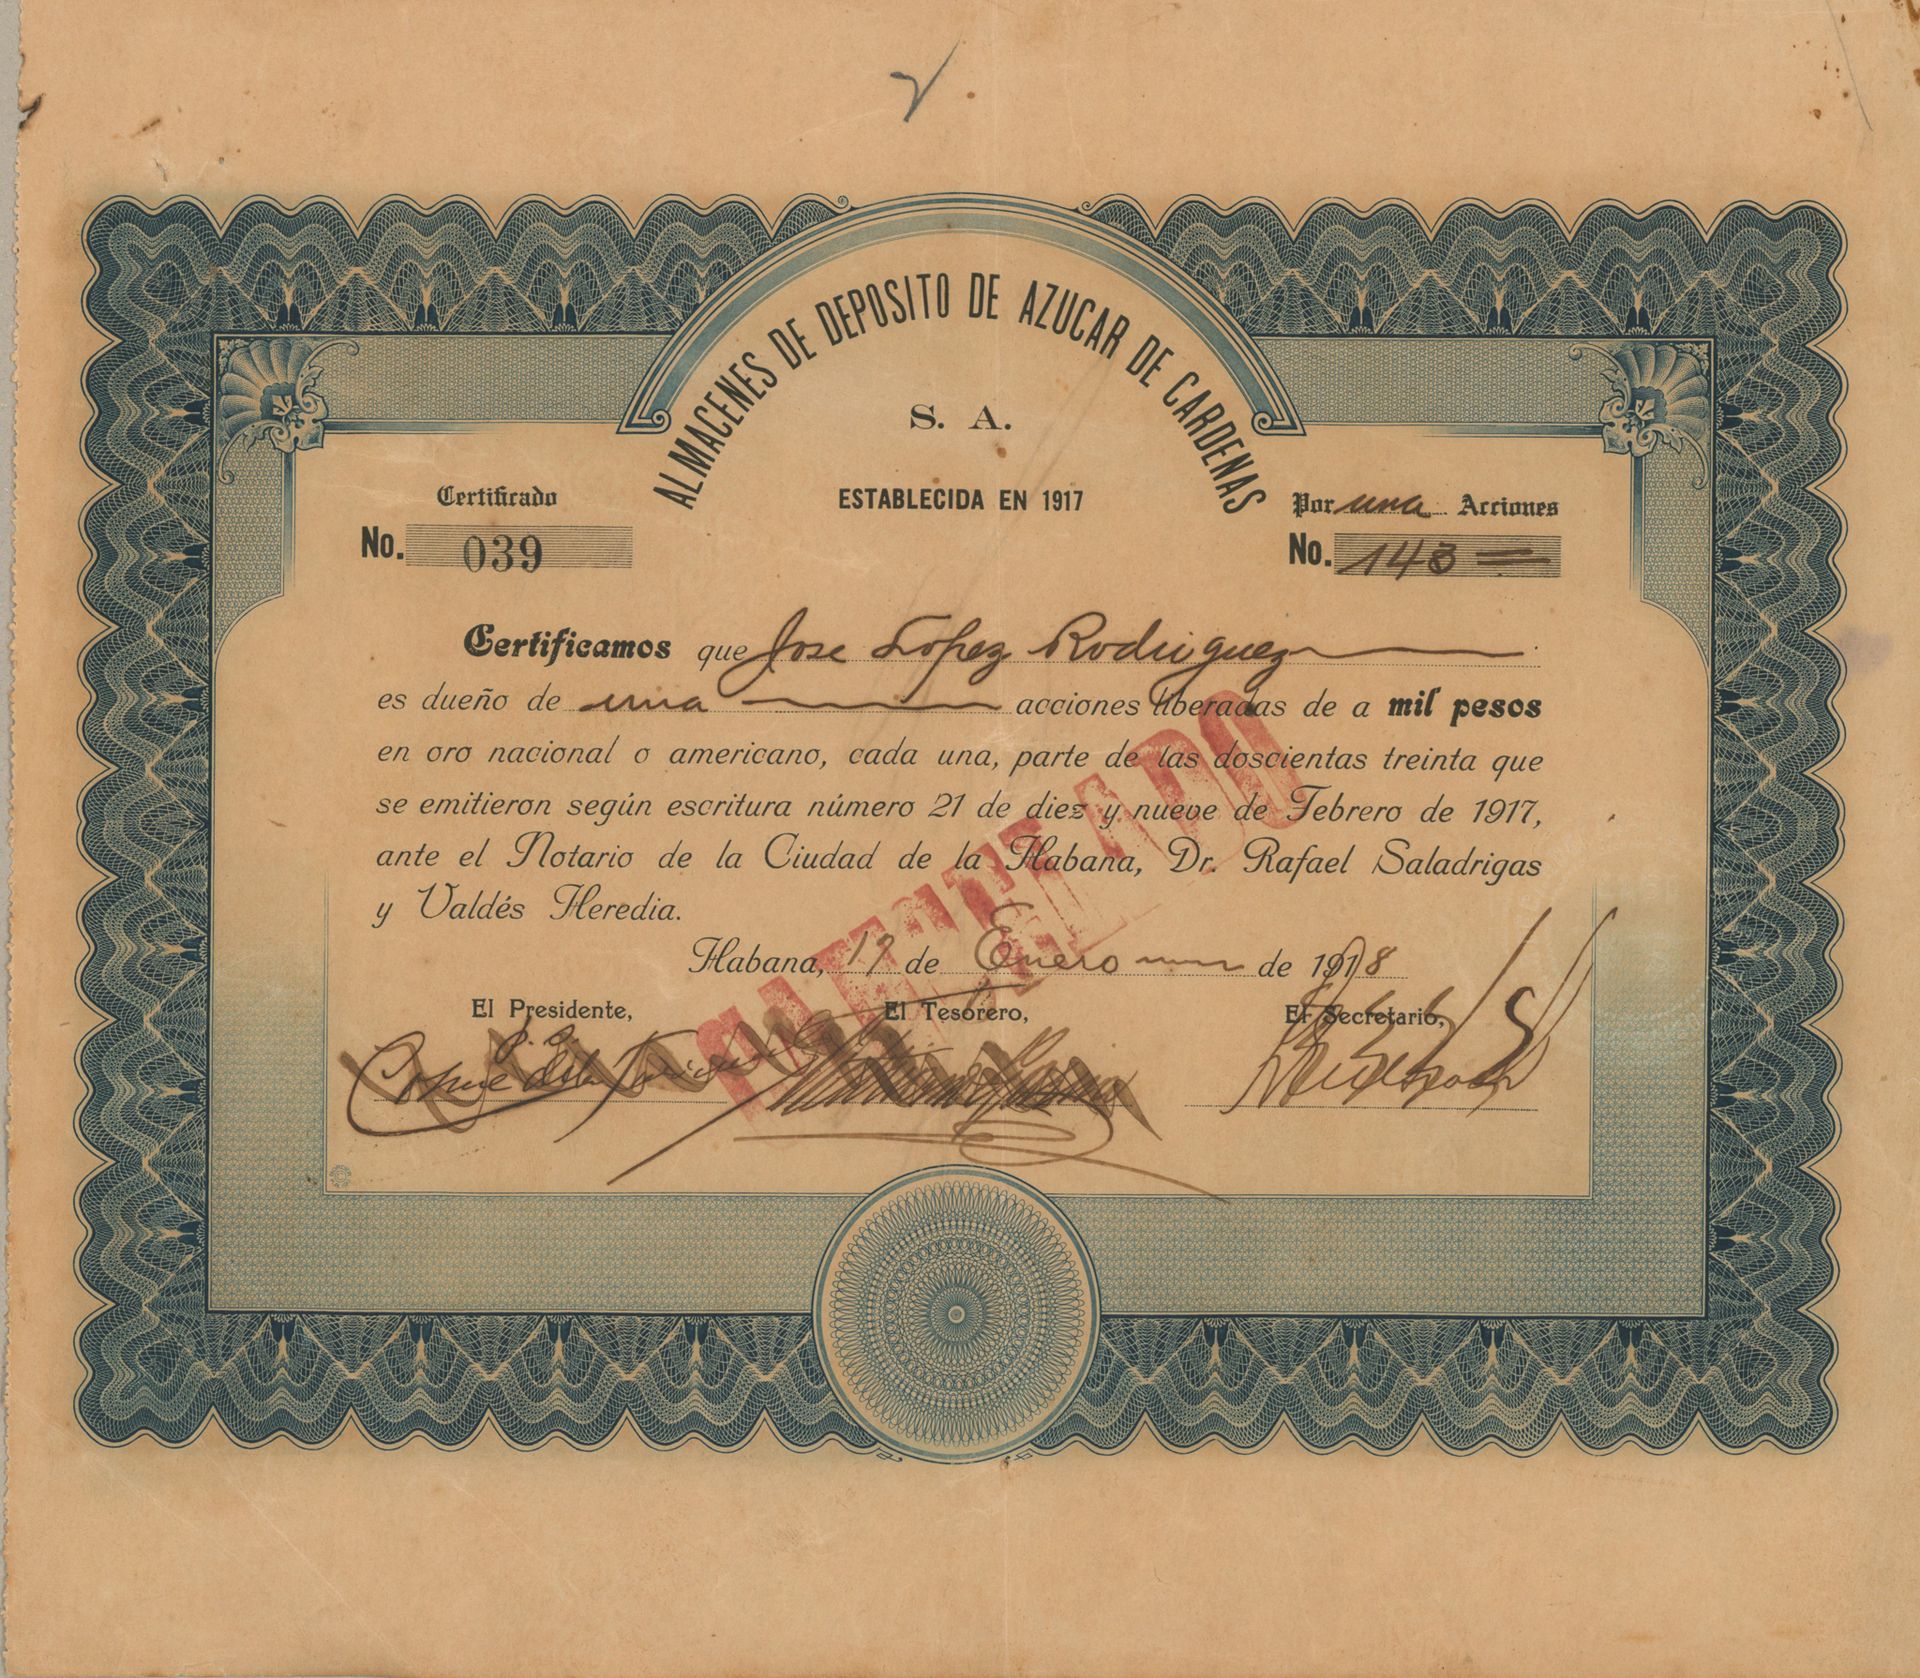 ALMACENES DE DEPOSITO DE AZUCAR DE CARDENAS
S. A.
ESTABLECIDA EN 1917
Certificado
No. 039
Por una Acciones
No. 143
Certificamos que Jose Lopez Rodriguez
es dueño de una acciones liberadas de a mil pesos
en oro nacional o americano, cada una, parte de las doscientas treinta que
se emitieron según escritura número 21 de diez y nueve de Febrero de 1917,
ante el Notario de la Ciudad de la Habana, Dr. Rafael Saladrigas
y Valdés Heredia.
Habana, 17 de Enero de 1918
El Presidente, El Tesorero, El Secretario,